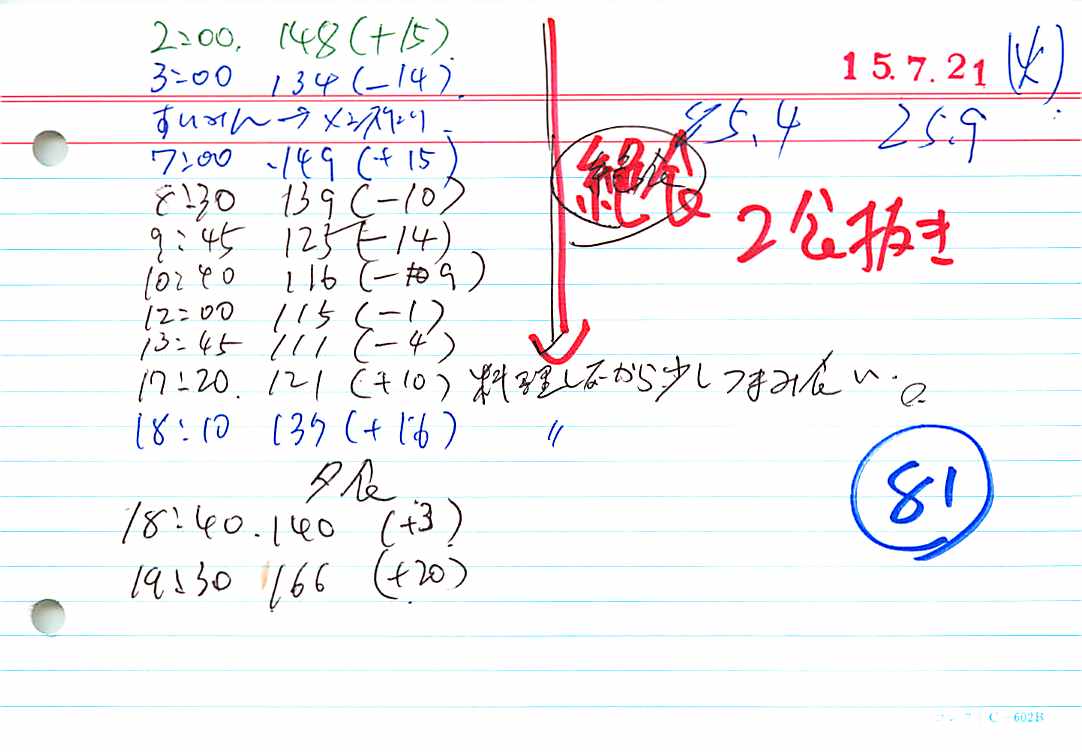 2:00. 148 (+15)
15.7.21 (火)
3:00 134 (-14)
85.4 25.9
すいみん→
7:00 149 (+15)
絶食
8:30 139 (-10)
2食抜き
9:45 125 (-14)
10:40 116 (-9)
12:00 115 (-1)
13:45 111 (-4)
17:20. 121 (+10) 料理しながら少しつまみ食い。
18:10 137 (+16) 〃
81
夕食
18:40. 140 (+3)
19:30 166 (+20)
C-602B